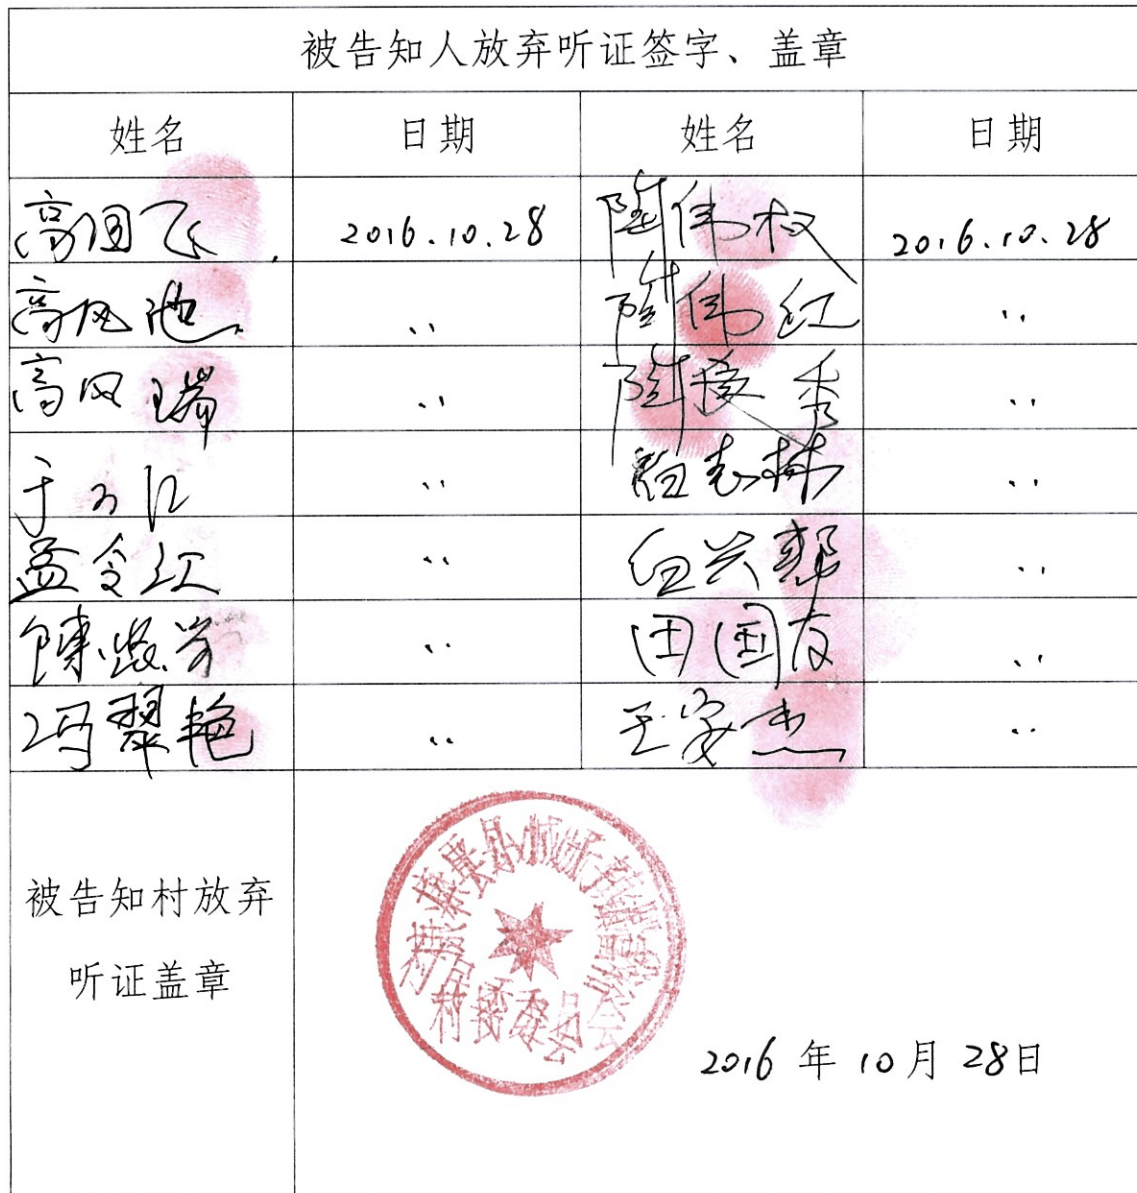 被告知人放弃听证签字、盖章
姓名 日期 姓名 日期
高国飞 2016.10.28 陶伟权 2016.10.28
高风池 〃 陶伟红 〃
高风瑞 〃 陶 秀 〃
于 江 〃 志林 〃
孟令江 〃 白兴帮 〃
陈 芳 〃 田国友 〃
冯翠艳 〃 王家杰 〃
被告知村放弃
听证盖章
2016年10月28日